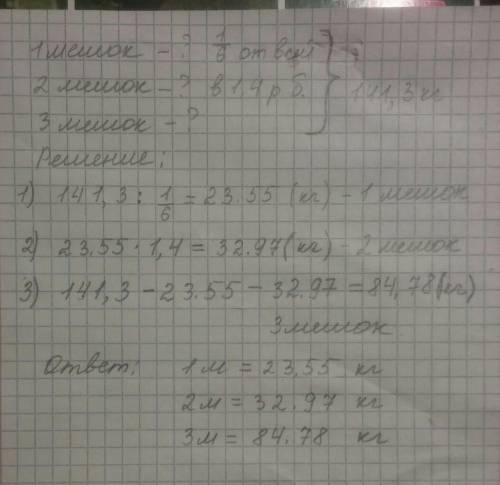 1 мешок - ? 1/6 от всей
2 мешок - ? в 1,4 р б. } 141,3 кг
3 мешок - ?
Решение:
1) 141,3 : 1/6 = 23.55 (кг) - 1 мешок
2) 23.55 · 1,4 = 32.97 (кг) - 2 мешок
3) 141,3 - 23.55 - 32.97 = 84,78 (кг)
3 мешок.
Ответ: 1м = 23,55 кг
2м = 32.97 кг
3м = 84.78 кг